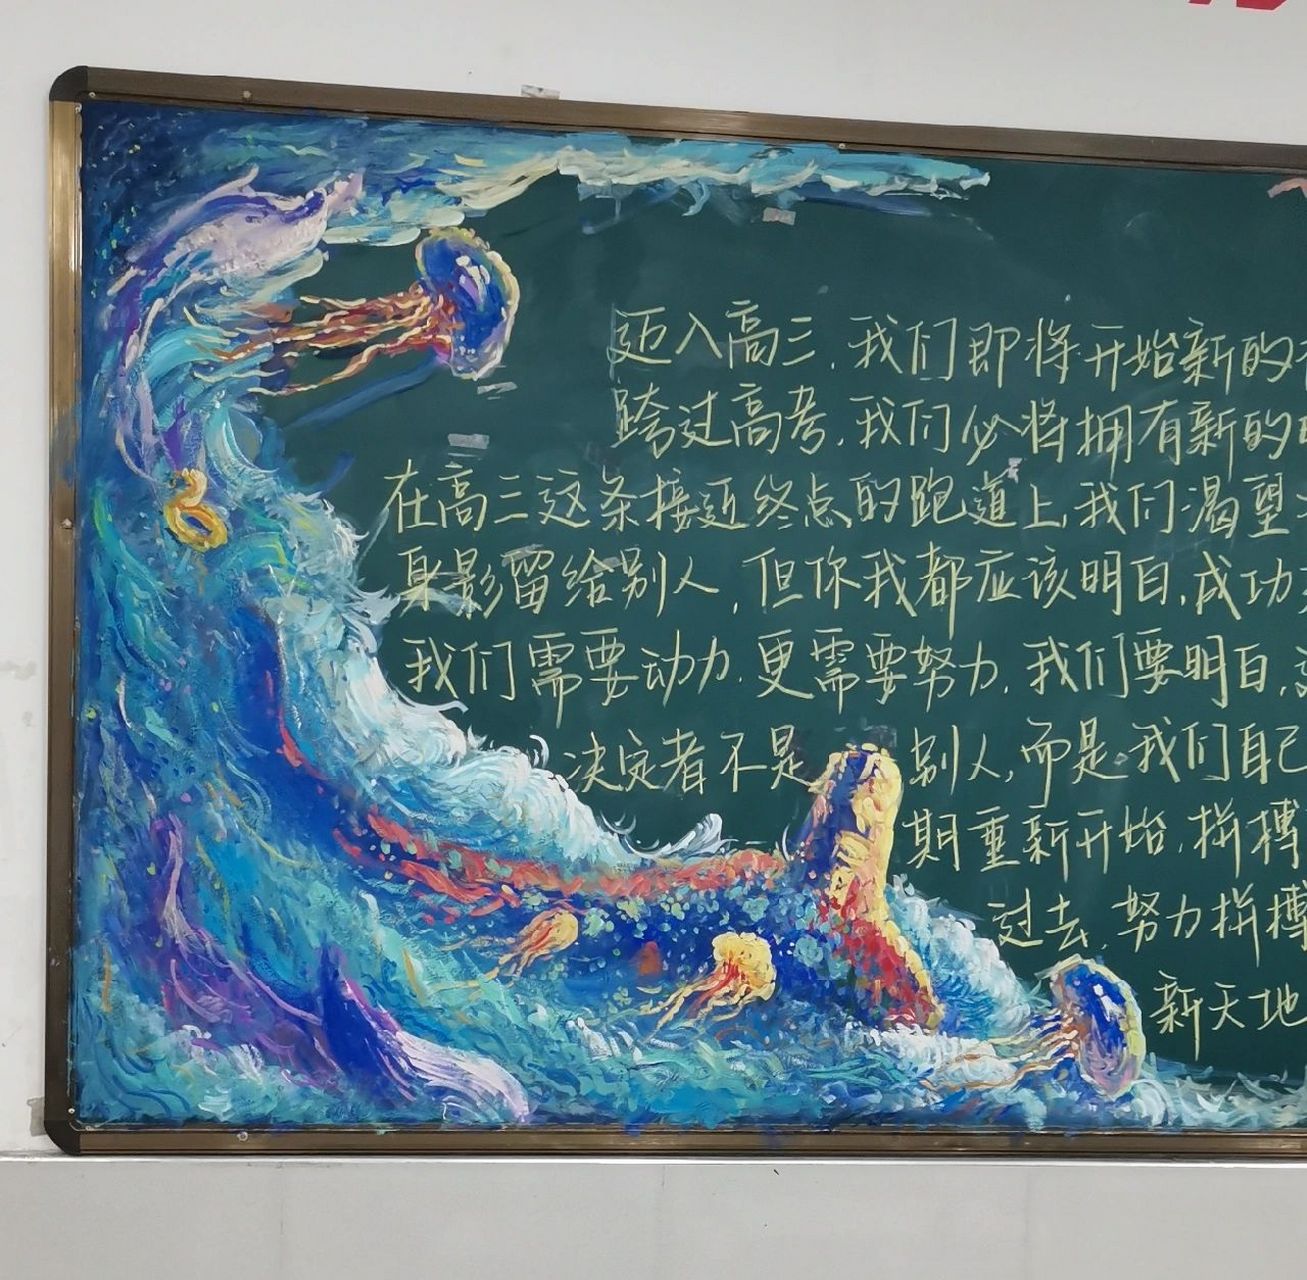 迈入高三，我们即将开始新的
跨过高考，我们必将拥有新的
在高三这条接近终点的跑道上，我们渴望
身影留给别人，但你我都应该明白，成功
我们需要动力，更需要努力，我们要明白，
决定者不是别人，而是我们自己
期重新开始，拼搏
过去，努力拼搏
新天地